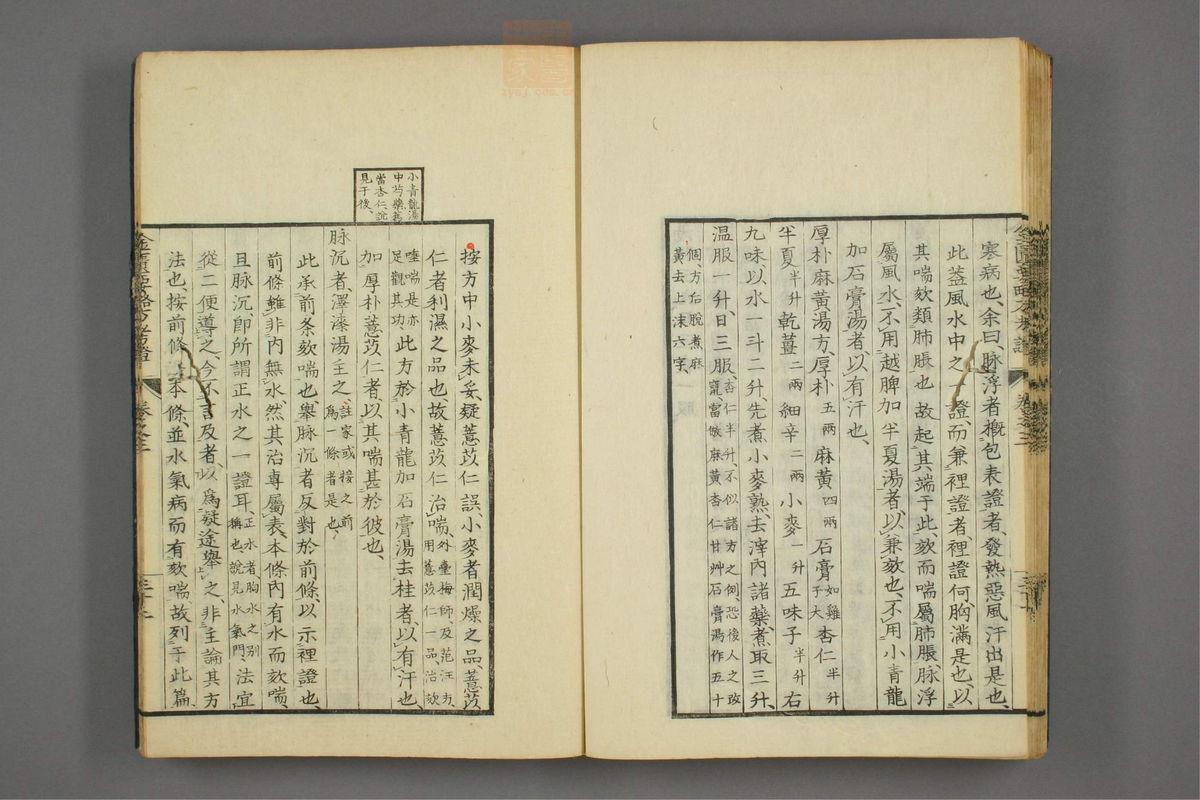 寒病也、余曰、脉浮者、概包表證者、發熱惡風汗出是也、
此葢風水中之證、而兼裡證者、裡證何、胸滿是也、以
其喘欬類肺脹也、故起其端于此、欬而喘屬肺脹、脉浮
屬風水、不用越脾加半夏湯者、以兼欬也、不用小青龍
加石膏湯者、以有汗也、
厚朴麻黃湯方、厚朴五兩麻黃四兩石膏如雞子大杏仁半升
半夏半升乾薑二兩細辛二兩小麥一升五味子半升右
九味以水一斗二升、先煮小麥熟、去滓、內諸藥、煮取三升、
温服一升、日三服、杏仁半升、不似諸方之例、恐後人之改竄、當倣麻黃杏仁甘艸石膏湯作五十
個方后脫煮麻黃去上沫六字、
小青龍湯
中芍藥
當杏仁說
見于後、
按方中小麥未妥、疑薏苡仁誤、小麥者潤燥之品、薏苡
仁者利濕之品也、故薏苡仁治喘、外臺梅師、及范汪方、用薏苡仁一品治欬
唾喘是亦足觀其功、此方於小青龍加石膏湯去桂者、以有汗也
加厚朴薏苡仁者、以其喘甚於彼也、
脉沉者、澤漆湯主之、註家或接之前爲一條者是也、
此承前条欬喘也、舉脉沉者、反對於前條、以示裡證也、
前條雖非內無水、然其治專屬表、本條內有水而欬喘、
且脉沉即所謂正水之一證耳、正水者胸水之別稱也、說見水氣門、法宜
從二便導之、今不言及者、以爲疑途舉之、非主論其方
法也、按前條本條、並水氣病而有欬喘、故列于此篇、